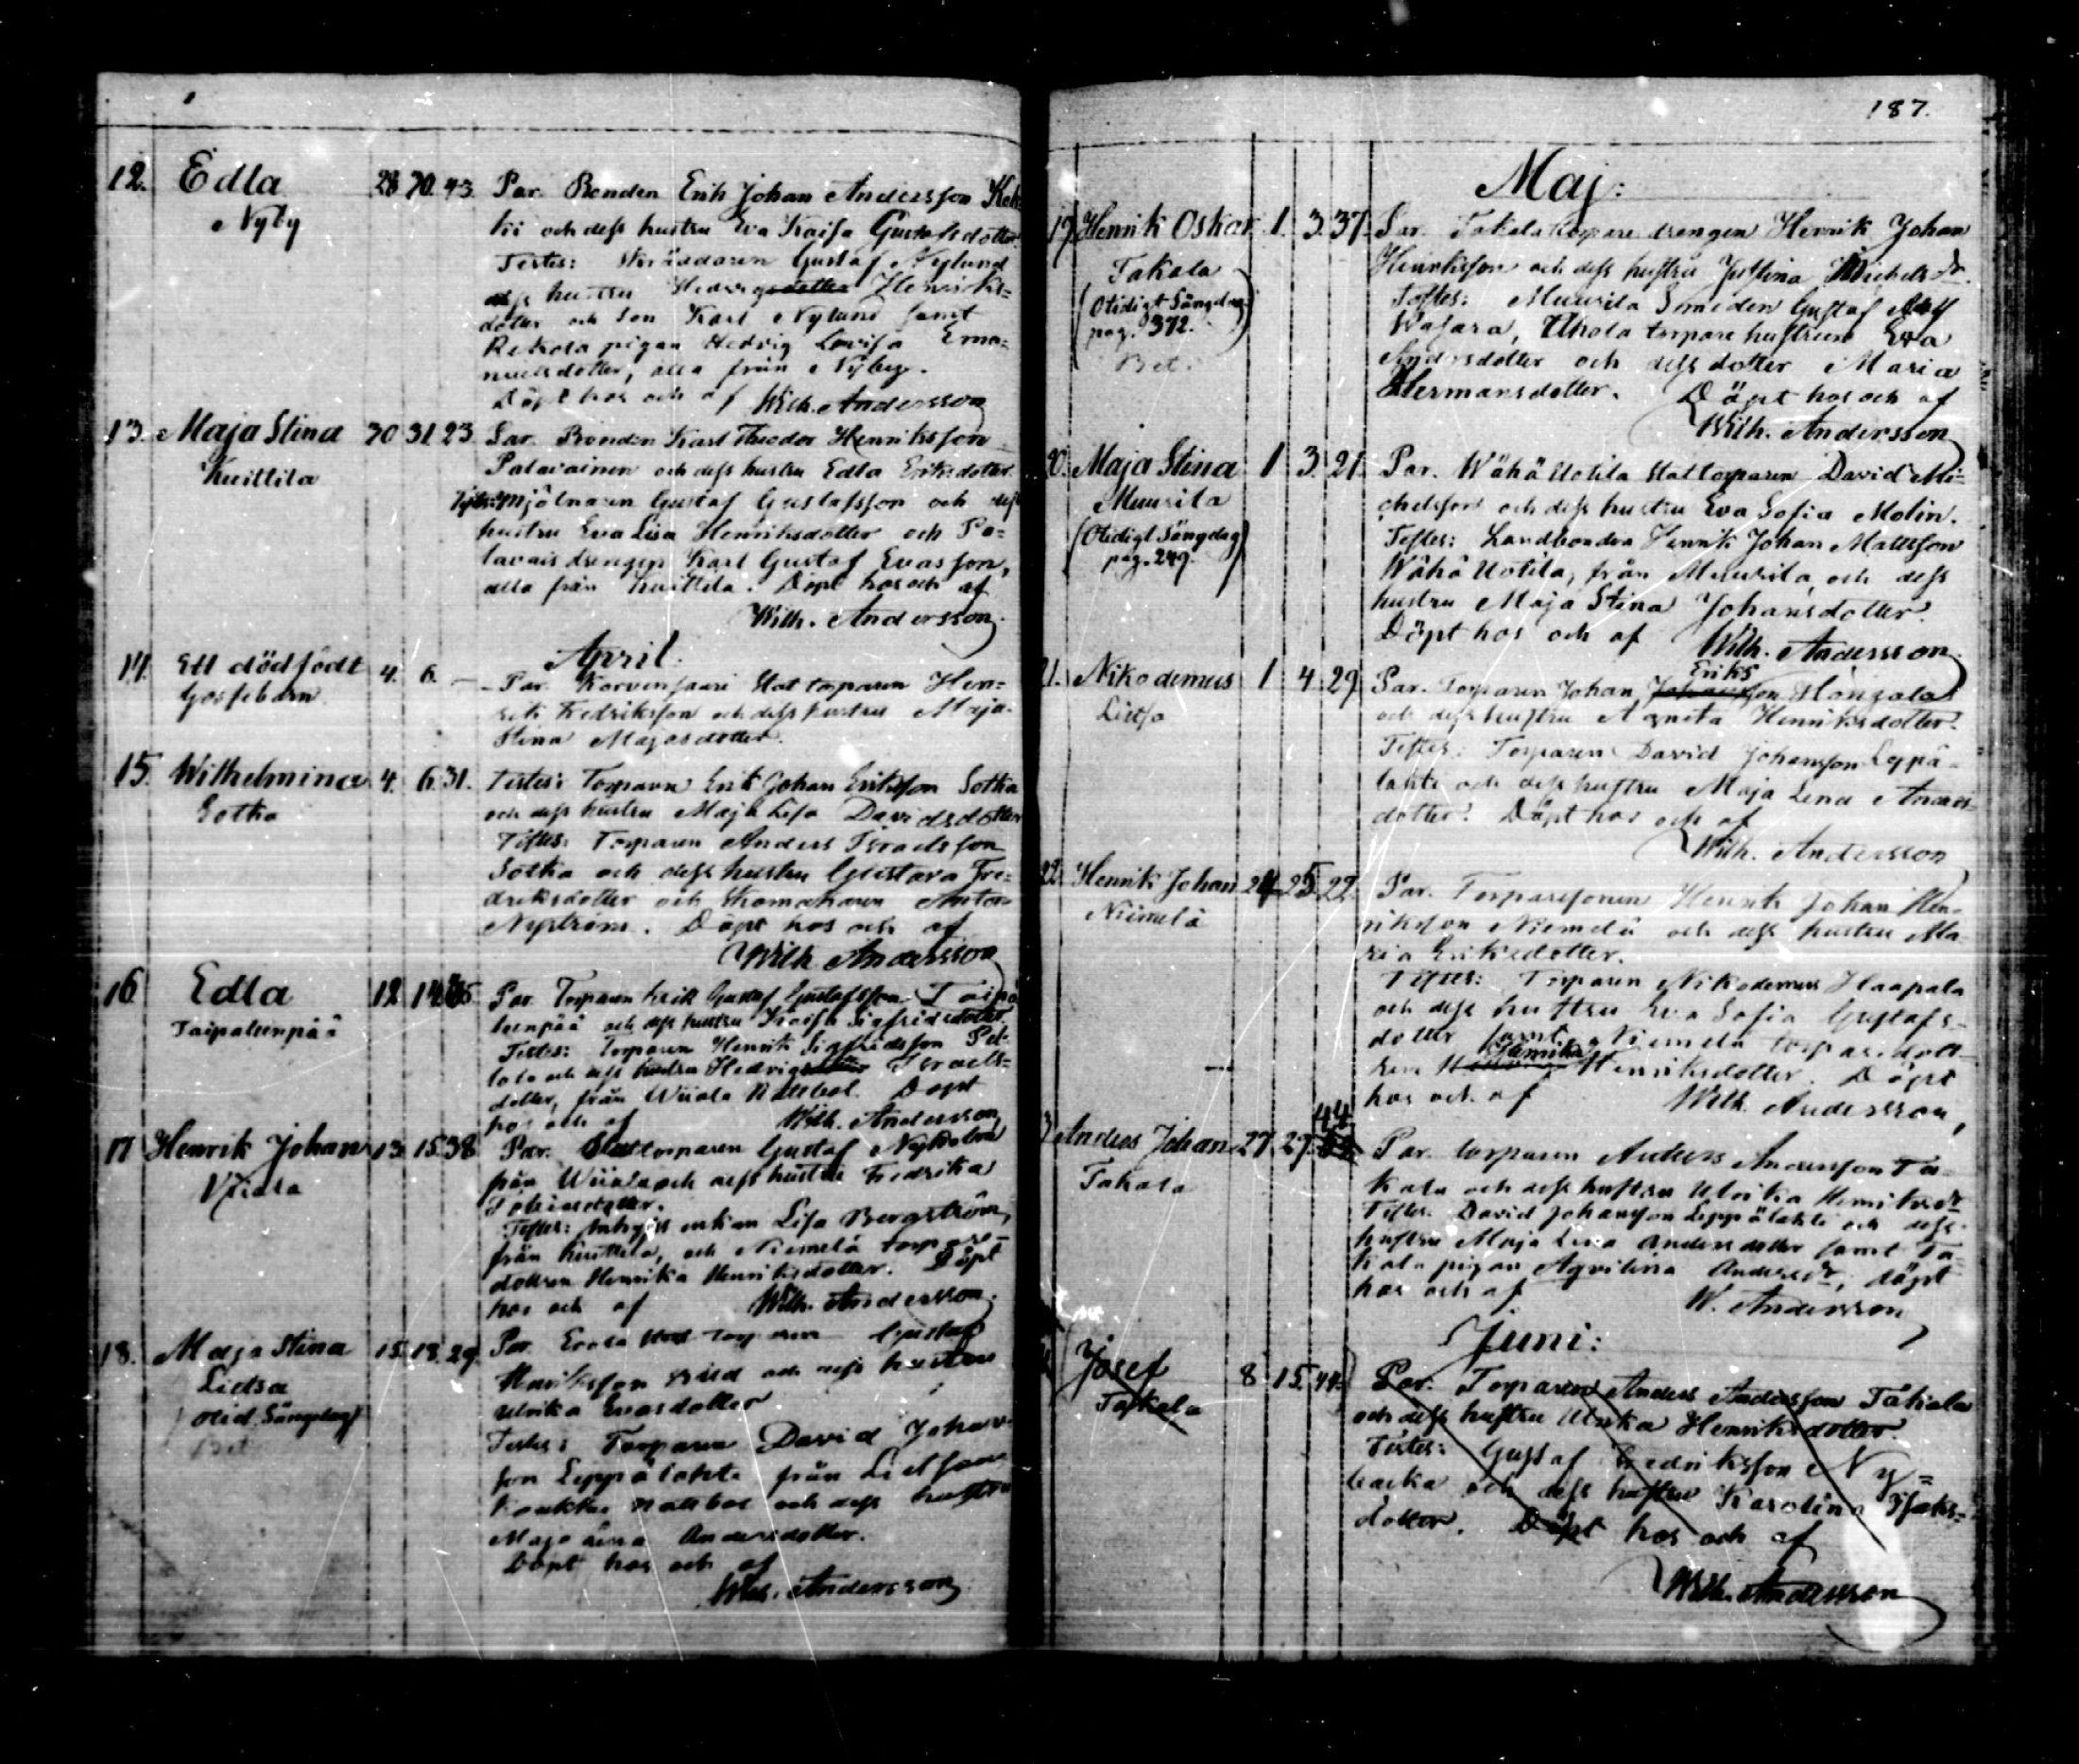 12. Edla 28 30. 43. Par. Bonden Erik Johan Andersson
Nyby
och dess hustru Eva Kaisa Gustafsdotter
Testes: Skräddaren Gustaf Nylund
dess hustru Hedvig Henriks=
dotter och son Karl Nylund samt
pigan Hedvig Lovisa Ema=
nuelsdotter, alla från Nyby.
Döpt hos och af Wilh. Andersson
13. Maja Stina 30 31 23 Par. Bonden Karl Theodor Henriksson
Kuittila
Palavainen och dess hustru Edla Eriksdotter
Mjölnaren Gustaf Gustafsson och dess
hustru Eva Lisa Henriksdotter och Pa=
lavais drengen Karl Gustaf Evasson,
alla från Kuittila. Döpt hos och af
Wilh. Andersson
April.
14. Ett dödfödt 4. 6. — Par. Korvensaari Stattorparen Hen=
Gossebarn
rik Fredriksson och dess hustru Maja
Stina
15. Wilhelmina 4. 6. 31. Testes: Torparen Erik Johan Eriksson Sotka
Sotka
och dess hustru Maja Lisa Davidsdotter
Testes: Torparen Anders Israelsson
Sotka och dess hustru Gustava Fre=
driksdotter och Skomakaren Anton
Nyström. Döpt hos och af
Wilh. Andersson
16 Edla 12 14 Par. Torparen Erik Gustaf Gustafsson Taipa
Taipaleenpää
leenpää och dess hustru Kaisa Sigfridsdotter
Testes: Torparen Henrik Sigfridsson
och dess hustru Hedvig Israels=
dotter, från Wiiala Döpt
hos och af Wilh. Andersson
17 Henrik Johan 13. 15. 38 Par. Stattorparen Gustaf Nyholm
Wiiala
från Wiiala och dess hustru Fredrika
Testes: enkan Lisa Bergström,
från Kuittila, och Niemelä torpare=
dottren Henrika Henriksdotter. Döpt
hos och af Wilh. Andersson
18. Maja Stina 15. 18. 29. Par. Gustaf
Lietsa
Henriksson och dess hustru
Ulrika Evasdotter
Testes: Torparen David Johans
son Leppälahti från
och dess hustru
Maja Lena Andersdotter.
Döpt hos och af
Wilh. Andersson
187.
Maj:
19. Henrik Oskar 1. 3. 37. Par. Takala torpare drengen Henrik Johan
Takala
(Otidigt Sängelag
pag. 372.)
Bet.
Henriksson och dess hustru Justina Michelsdr.
Testes: Muurila Smeden Gustaf
Wasara, Uhola torpare hustrun Eva
Andersdotter och dess dotter Maria
Hermansdotter. Döpt hos och af
Wilh. Andersson
20. Maja Stina 1 3. 21. Par. Wähä Uotila Stattorparen David Mi=
Muurila
(Otidigt Sängelag
pag. 249.)
chelsson och dess hustru Eva Sofia Molin.
Testes: Landbonden Henrik Johan Mattsson
Wähä Uotila, från Muurila, och dess
hustru Maja Stina Johansdotter.
Döpt hos och af Wilh. Andersson
21. Nikodemus 1 4 29 Par. Torparen Johan Eriksson
Lietsa
och dess hustru Agneta Henriksdotter.
Testes: Torparen David Johansson Leppä=
lahti och dess hustru Maja Lena Anders=
dotter. Döpt hos och af
Wilh. Andersson
22. Henrik Johan 24. 25. 22. Par. Torparesonen Henrik Johan Hen=
Niemelä
riksson Niemelä och dess hustru Ma
ria Eriksdotter.
Testes: Torparen Nikodemus Haapala
och dess hustru Eva Sofia Gustafs
dotter samt Niemelä torparedott
ren Henrika Henriksdotter. Döpt
hos och af Wilh. Andersson,
Anders Johan 27. 29. 44 Par. torparen Anders Andersson Ta=
Takala
kala och dess hustru Ulrika Henriksdr
Testes. David Johansson Leppälahti och dess
hustru Maja Lena Andersdotter samt Ta=
kala pigan Aqvilina Andersdr, döpt
hos och af W. Andersson
Juni:
Josef 8 15. 44. Par. Torparen Anders Andersson Takala
Takala
och dess hustru Ulrika Henriksdotter.
Testes: Gustaf Fredriksson Ny=
backa och dess hustru Karolina Isaks=
dotter. Döpt hos och af
Wilh. Andersson